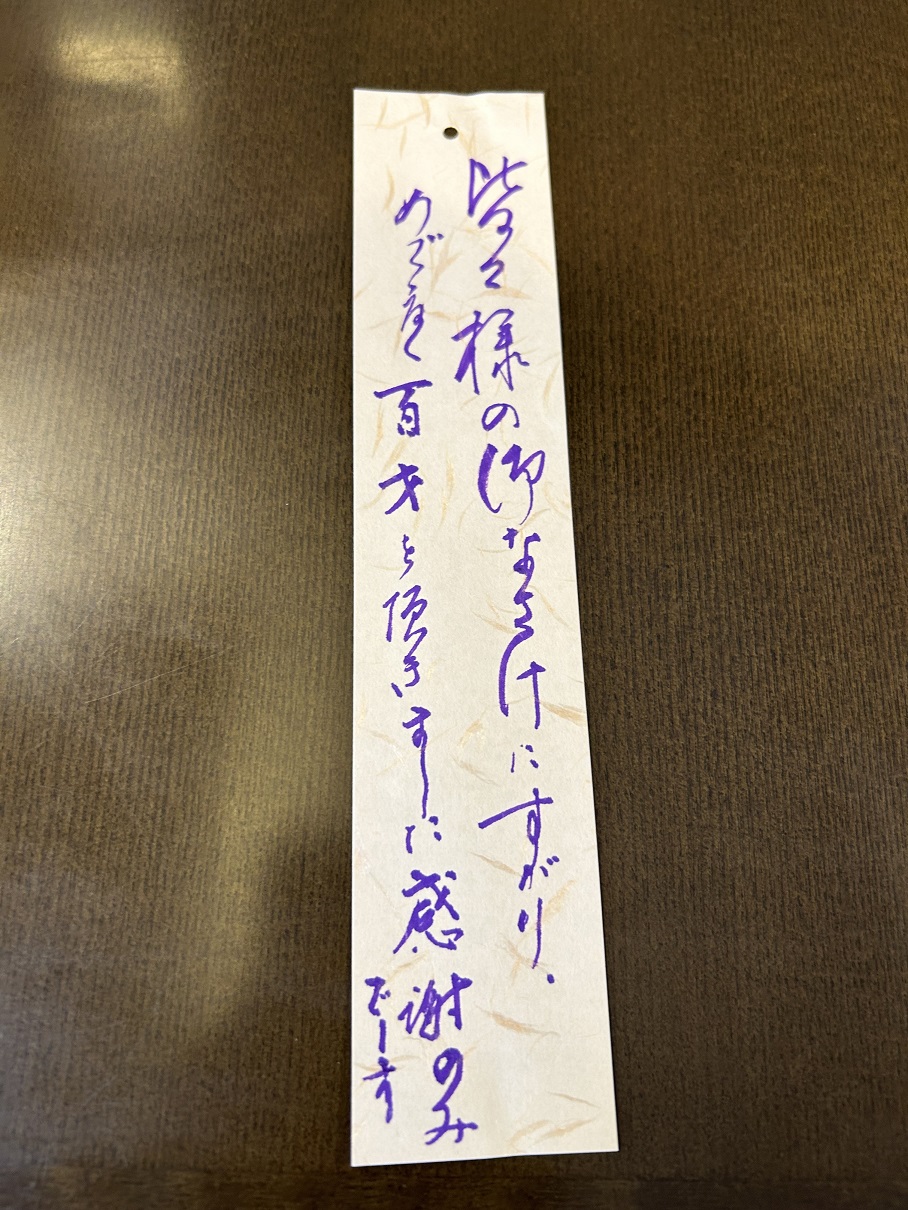 皆々様の御なさけにすがり.
めで度く百才を頂きました感謝のみ
でーす